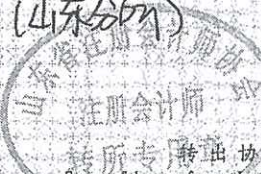 (山东分所)
山东省注册会计师协会
注册会计师
转所专用章
转出协